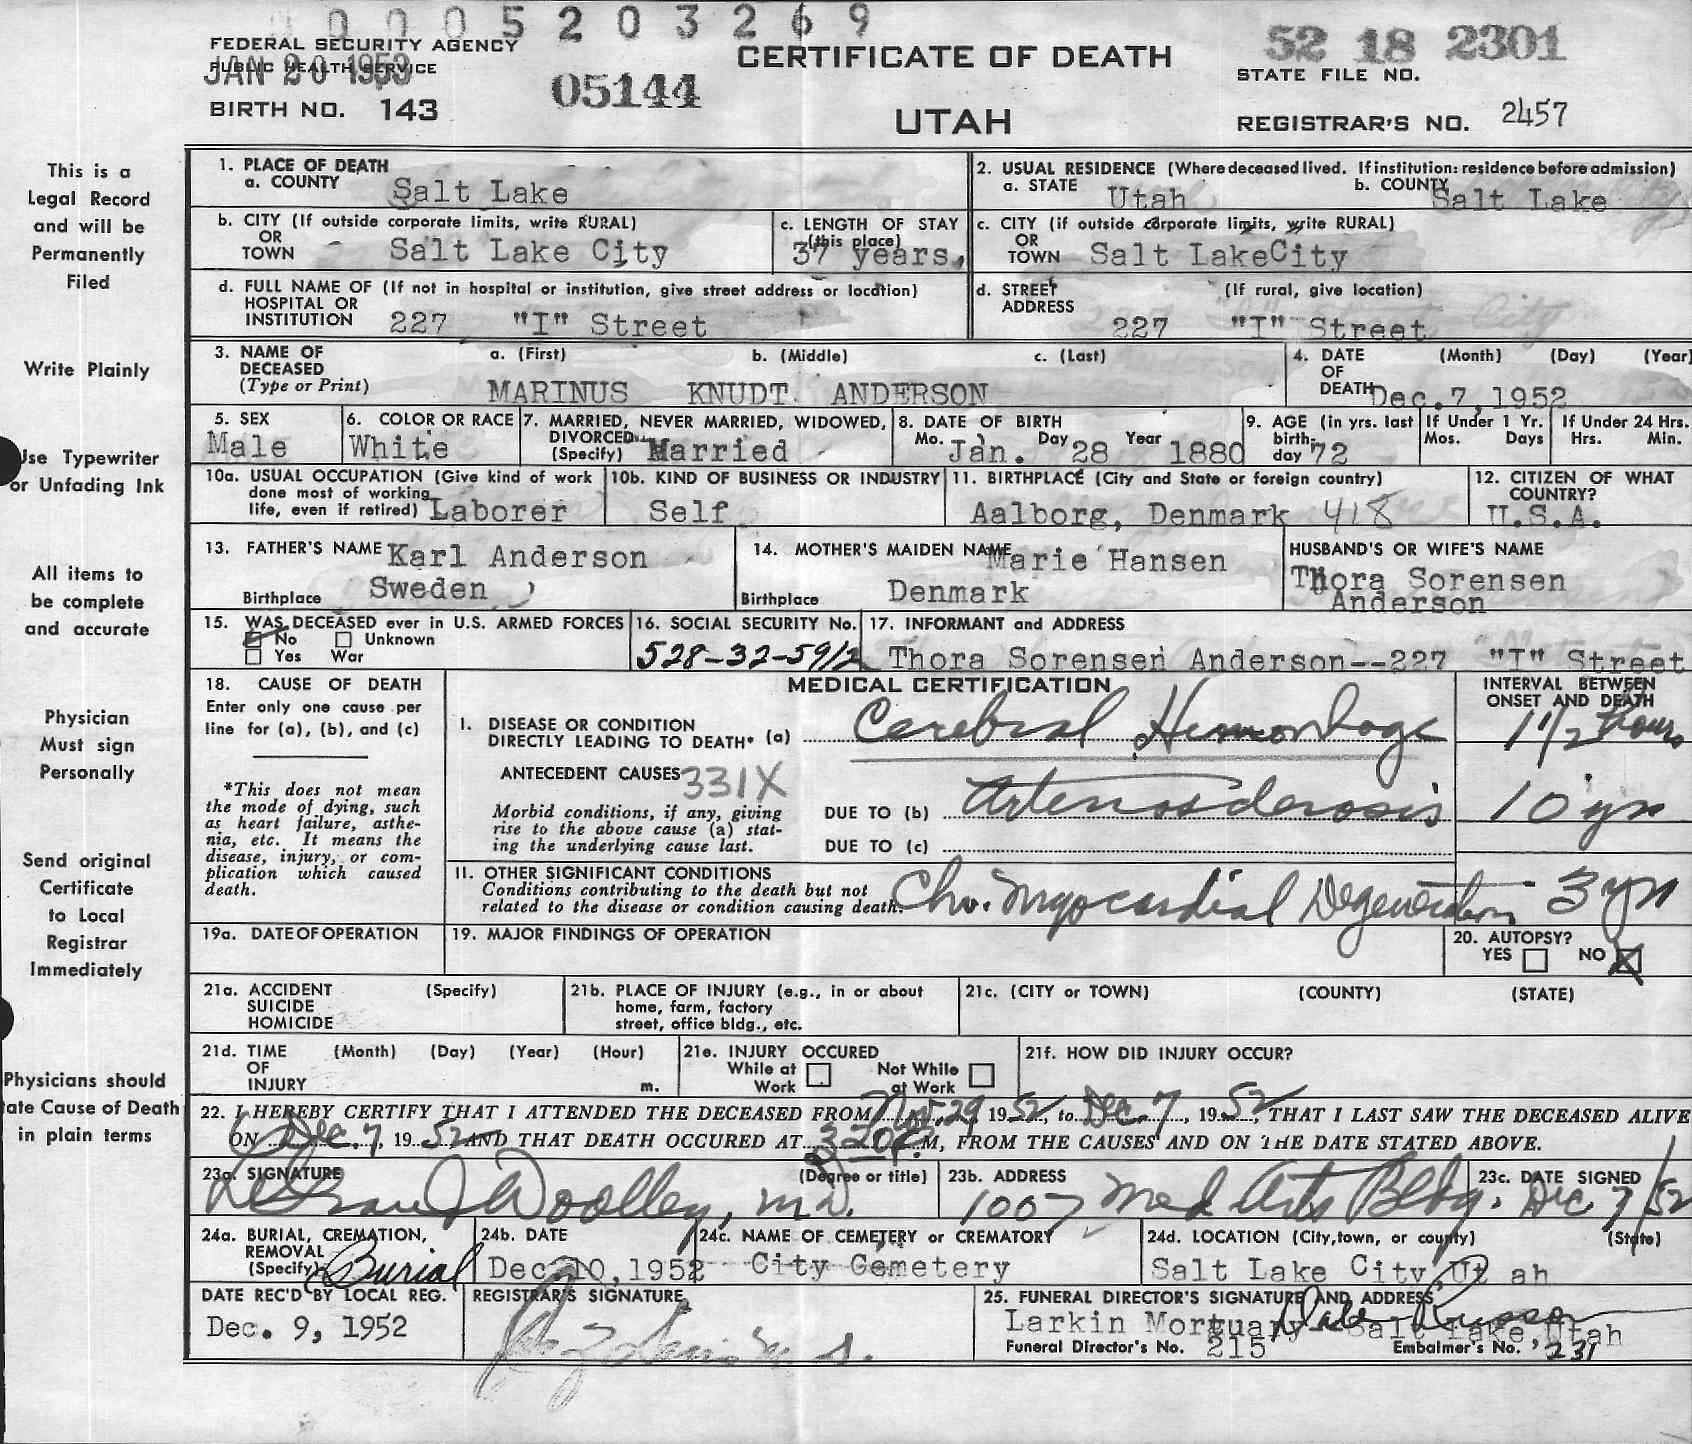 0 0 0 0 5 2 0 3 2 6 9
FEDERAL SECURITY AGENCY
PUBLIC HEALTH SERVICE
JAN 20 1953
BIRTH NO. 143
05144
CERTIFICATE OF DEATH
UTAH
52 18 2301
STATE FILE NO.
REGISTRAR'S NO. 2457
This is a
Legal Record
and will be
Permanently
Filed
Write Plainly
Use Typewriter
or Unfading Ink
All items to
be complete
and accurate
Physician
Must sign
Personally
Send original
Certificate
to Local
Registrar
Immediately
Physicians should
ate Cause of Death
in plain terms
1. PLACE OF DEATH
a. COUNTY Salt Lake
2. USUAL RESIDENCE (Where deceased lived. If institution: residence before admission)
a. STATE Utah b. COUNTY Salt Lake
b. CITY (If outside corporate limits, write RURAL)
OR
TOWN Salt Lake City
c. LENGTH OF STAY
(this place)
37 years,
c. CITY (if outside corporate limits, write RURAL)
OR
TOWN Salt LakeCity
d. FULL NAME OF (If not in hospital or institution, give street address or location)
HOSPITAL OR
INSTITUTION 227 "I" Street
d. STREET (If rural, give location)
ADDRESS
227 "I" Street
3. NAME OF a. (First) b. (Middle) c. (Last)
DECEASED
(Type or Print) MARINUS KNUDT ANDERSON
4. DATE (Month) (Day) (Year)
OF
DEATH Dec.7,1952
5. SEX
Male
6. COLOR OR RACE
White
7. MARRIED, NEVER MARRIED, WIDOWED,
DIVORCED
(Specify) Married
8. DATE OF BIRTH
Mo. Jan. Day 28 Year 1880
9. AGE (in yrs. last
birth-
day 72
If Under 1 Yr.
Mos. Days
If Under 24 Hrs.
Hrs. Min.
10a. USUAL OCCUPATION (Give kind of work
done most of working
life, even if retired) Laborer
10b. KIND OF BUSINESS OR INDUSTRY
Self
11. BIRTHPLACE (City and State or foreign country)
Aalborg, Denmark 418
12. CITIZEN OF WHAT
COUNTRY?
U.S.A.
13. FATHER'S NAME Karl Anderson
Birthplace Sweden
14. MOTHER'S MAIDEN NAME Marie Hansen
Birthplace Denmark
HUSBAND'S OR WIFE'S NAME
Thora Sorensen
Anderson
15. WAS DECEASED ever in U.S. ARMED FORCES
No Unknown
Yes War
16. SOCIAL SECURITY No.
528-32-5912
17. INFORMANT and ADDRESS
Thora Sorensen Anderson--227 "I" Street
18. CAUSE OF DEATH
Enter only one cause per
line for (a), (b), and (c)
*This does not mean
the mode of dying, such
as heart failure, asthe-
nia, etc. It means the
disease, injury, or com-
plication which caused
death.
MEDICAL CERTIFICATION
INTERVAL BETWEEN
ONSET AND DEATH
I. DISEASE OR CONDITION
DIRECTLY LEADING TO DEATH* (a) Cerebral Hemorrhage 1 1/2 hours
ANTECEDENT CAUSES 331X
Morbid conditions, if any, giving
rise to the above cause (a) stat-
ing the underlying cause last.
DUE TO (b) Arteriosclerosis 10 yrs
DUE TO (c)
II. OTHER SIGNIFICANT CONDITIONS
Conditions contributing to the death but not
related to the disease or condition causing death. Chr. Myocardial Degeneration 3 yrs
19a. DATE OF OPERATION
19. MAJOR FINDINGS OF OPERATION
20. AUTOPSY?
YES NO
21a. ACCIDENT (Specify)
SUICIDE
HOMICIDE
21b. PLACE OF INJURY (e.g., in or about
home, farm, factory
street, office bldg., etc.
21c. (CITY or TOWN) (COUNTY) (STATE)
21d. TIME (Month) (Day) (Year) (Hour)
OF
INJURY m.
21e. INJURY OCCURED
While at Not While
Work at Work
21f. HOW DID INJURY OCCUR?
22. I HEREBY CERTIFY THAT I ATTENDED THE DECEASED FROM Nov. 29 1952, to Dec. 7, 1952, THAT I LAST SAW THE DECEASED ALIVE
ON Dec. 7, 1952 AND THAT DEATH OCCURED AT 3:20 P.M, FROM THE CAUSES AND ON THE DATE STATED ABOVE.
23a. SIGNATURE (Degree or title)
LeGrand Woolley, M.D.
23b. ADDRESS
1007 Med Arts Bldg.
23c. DATE SIGNED
Dec 7/52
24a. BURIAL, CREMATION,
REMOVAL
(Specify) Burial
24b. DATE
Dec 10,1952
24c. NAME OF CEMETERY or CREMATORY
City Cemetery
24d. LOCATION (City,town, or county) (State)
Salt Lake City,Ut ah
DATE REC'D BY LOCAL REG.
Dec. 9, 1952
REGISTRAR'S SIGNATURE
25. FUNERAL DIRECTOR'S SIGNATURE AND ADDRESS
Larkin Mortuary Salt Lake,Utah
Funeral Director's No. 215 Embalmer's No. 231